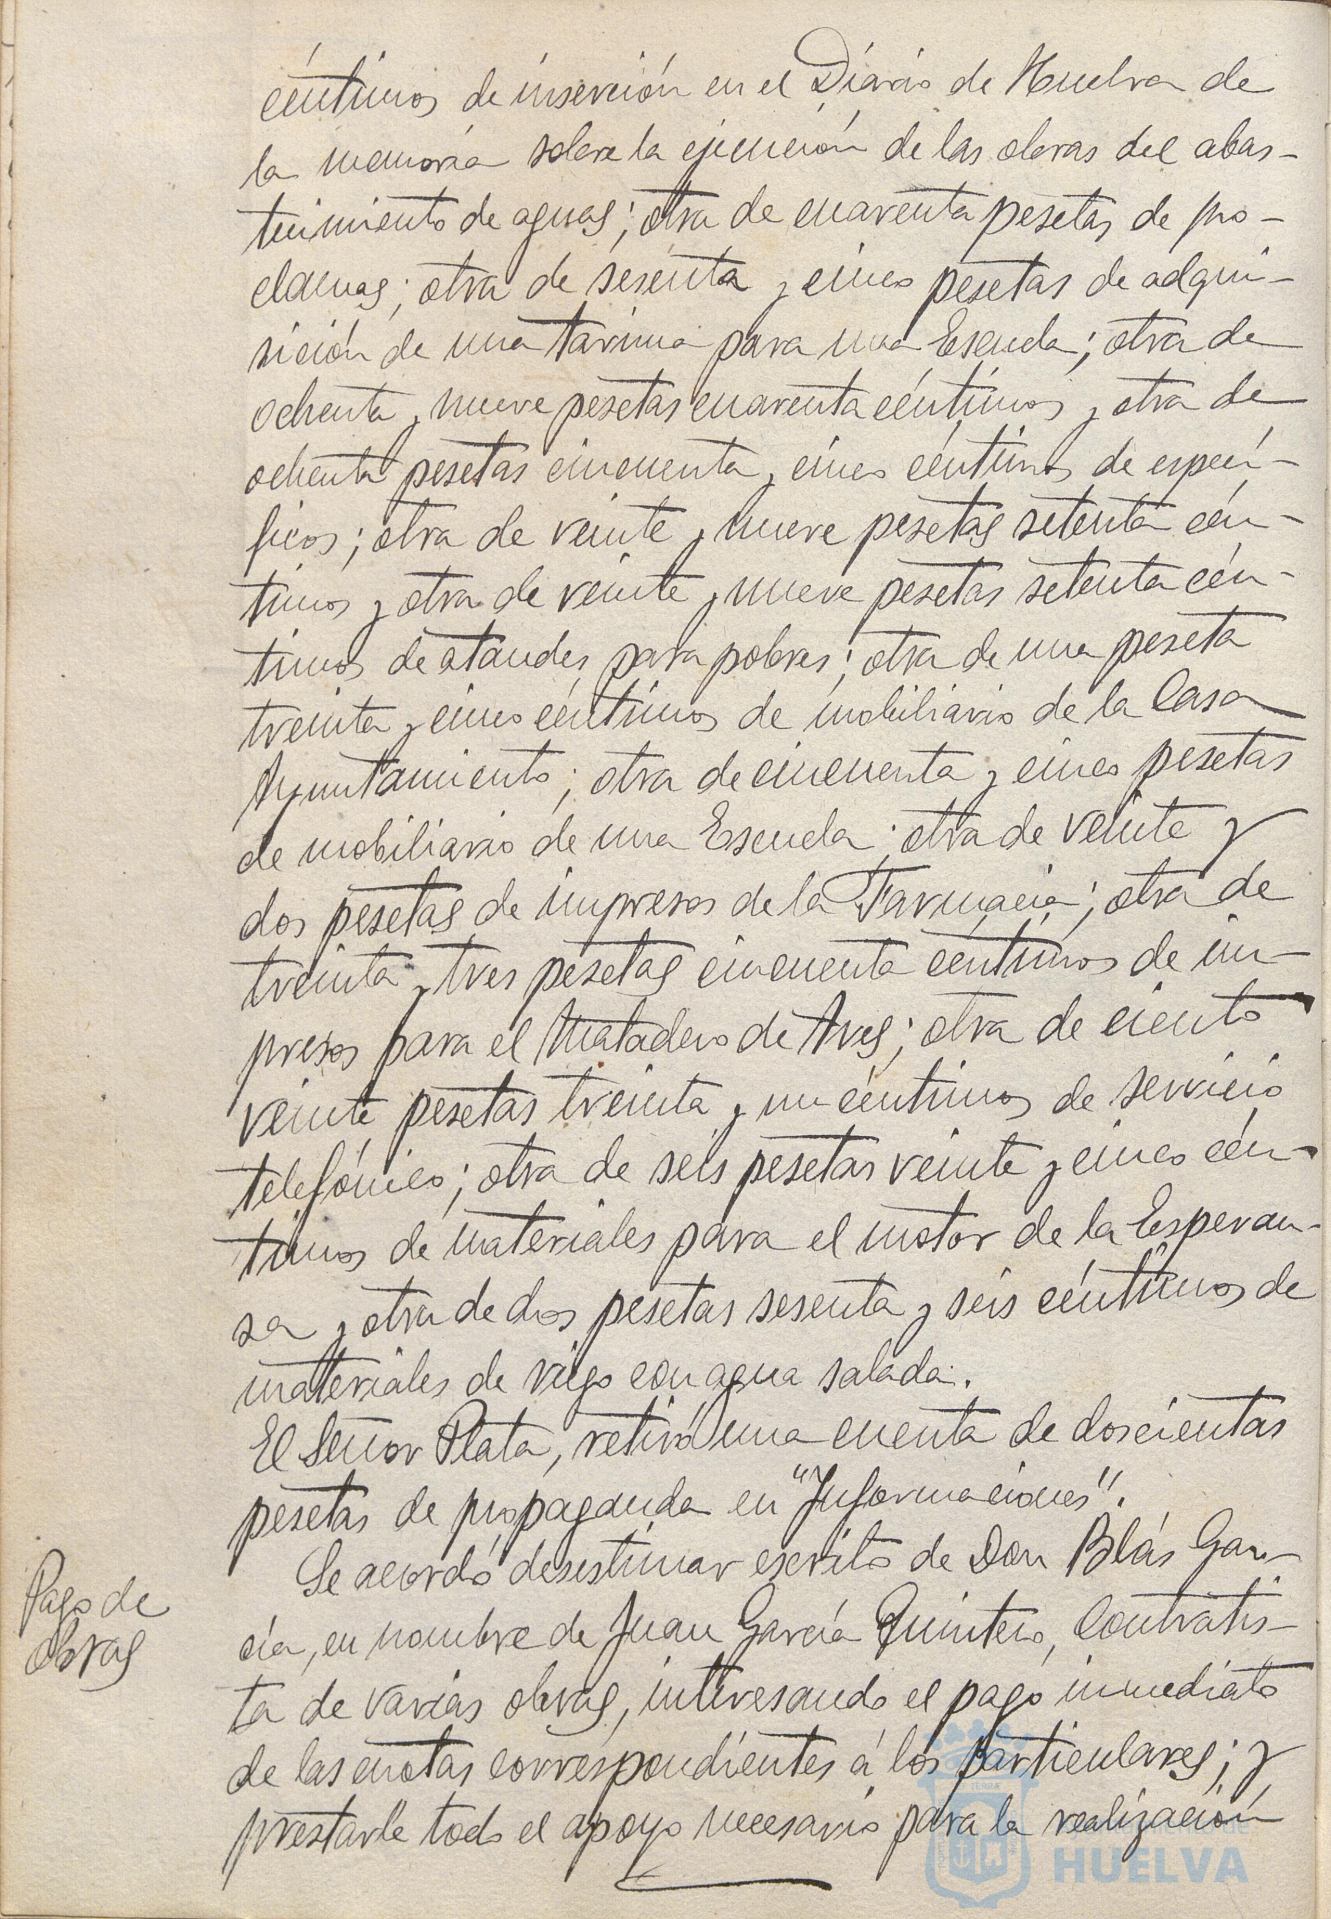 céntimos de inserción en el Diario de Huelva de
la memoria sobre la ejecución de las obras del abas-
tecimiento de aguas; otra de cuarenta pesetas de pro-
clamas; otra de sesenta y cinco pesetas de adqui-
sición de una tarima para una Escuela; otra de
ochenta y nueve pesetas cuarenta céntimos y otra de
ochenta pesetas cincuenta y cinco céntimos de especí-
ficos; otra de veinte y nueve pesetas setenta cén-
timos y otra de veinte y nueve pesetas setenta cén-
timos de ataudes para pobres; otra de una peseta
treinta y cinco céntimos de mobiliario de la Casa
Ayuntamiento; otra de cincuenta y cinco pesetas
de mobiliario de una Escuela; otra de veinte y
dos pesetas de impresos de la Farmacia; otra de
treinta y tres pesetas cincuenta céntimos de im-
presos para el Matadero de Aves; otra de ciento
veinte pesetas treinta y un céntimos de servicio
telefónico; otra de seis pesetas veinte y cinco cén-
timos de materiales para el motor de la Esperan-
za y otra de dos pesetas sesenta y seis céntimos de
materiales de riego con agua salada.
El Señor Plata, retiró una cuenta de doscientas
pesetas de propaganda en "Informaciones".
Pago de
obras
Se acordó desestimar escrito de Don Blás Gar-
cía, en nombre de Juan García Quintero, Contratis-
ta de varias obras, interesando el pago inmediato
de las cuotas correspondientes á los particulares; y
prestarle todo el apoyo necesario para la realización
HUELVA